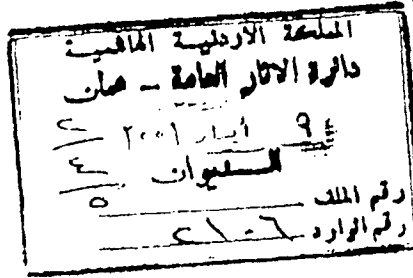 المملكة الأردنية الهاشمية
دائرة الآثار العامة - عمان
٩ أيار ٢٠٠١
الديوان
رقم الملف
رقم الوارد ٢١٠٦